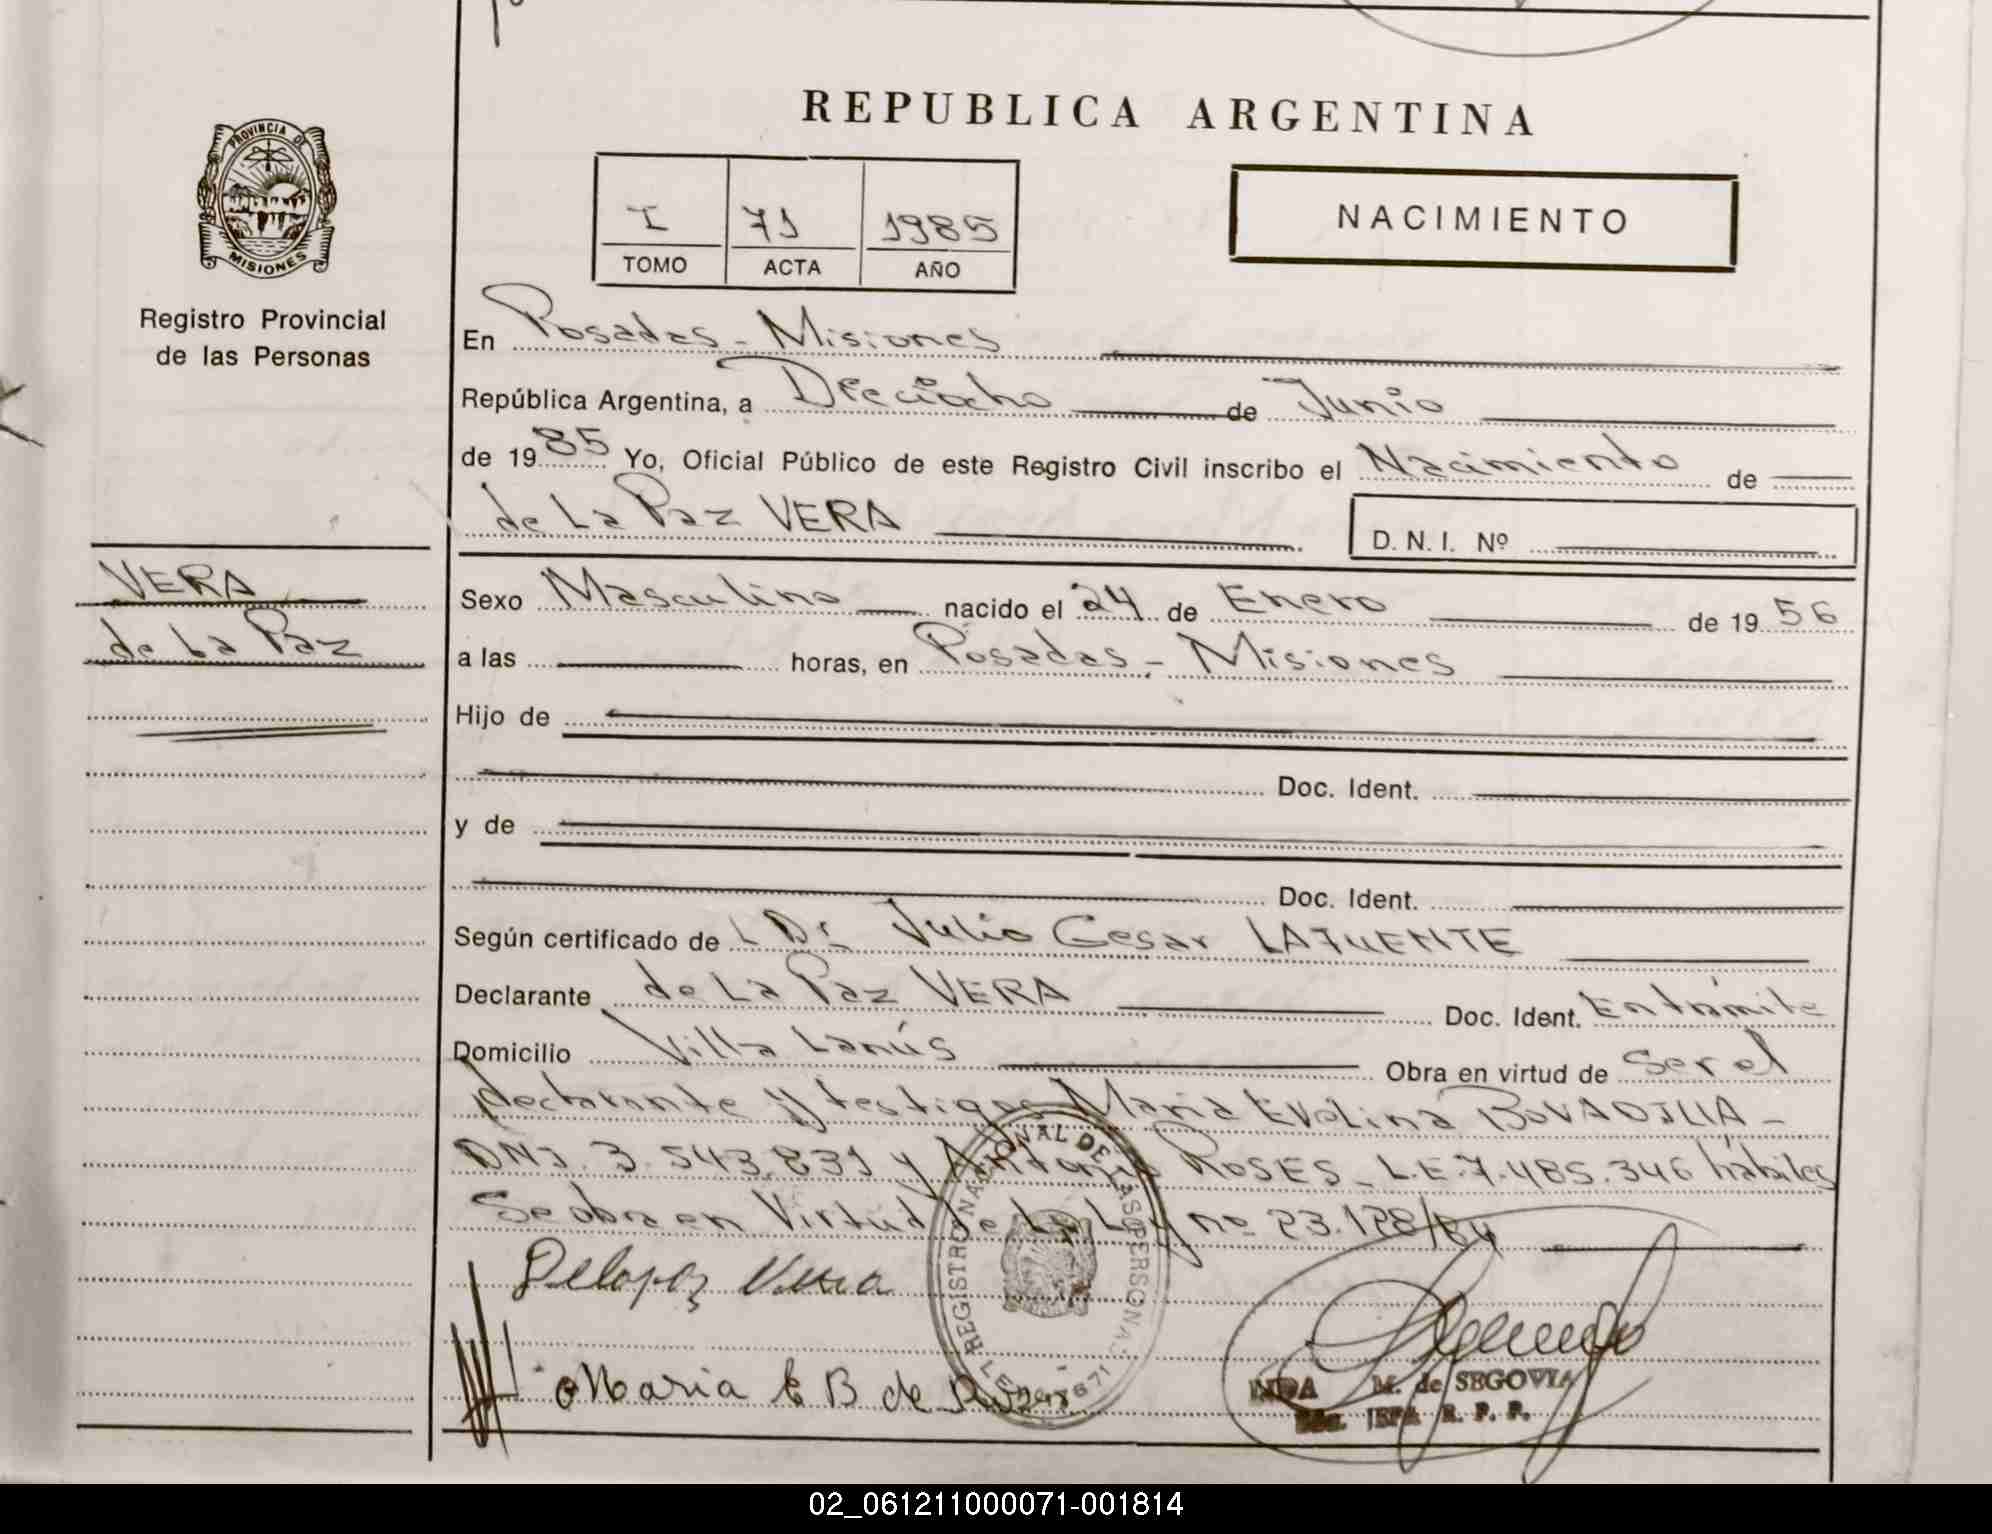 REPUBLICA ARGENTINA
PROVINCIA DE MISIONES
Registro Provincial
de las Personas
I 71 1985
TOMO ACTA AÑO
NACIMIENTO
En Posadas - Misiones
República Argentina, a Dieciocho de Junio
de 1985 Yo, Oficial Público de este Registro Civil inscribo el Nacimiento de
de La Paz VERA
D. N. I. Nº
VERA
de La Paz
Sexo Masculino nacido el 24 de Enero de 1956
a las horas, en Posadas - Misiones
Hijo de
Doc. Ident.
y de
Doc. Ident.
Según certificado de Dr Julio Cesar LAFUENTE
Declarante de La Paz VERA Doc. Ident. En trámite
Domicilio Villa Lanús Obra en virtud de ser el
declarante y testigos María Evelina BOVADILLA -
DNI. 3.543.831 y Antonio ROSES - L.E. 7.485.346 hábiles
Se obra en Virtud de La Ley nº 23.128/84
Delapaz Vera
REGISTRO NACIONAL DE LAS PERSONAS
Maria E B de
M. de SEGOVIA
JEFA R. P. P.
02_061211000071-001814